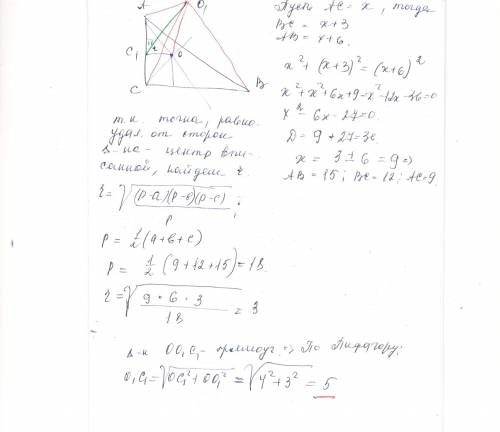 A
O₁
C₁
r
o
C
B
Пусть AC = x, тогда
BC = x+3
AB = x+6.
x² + (x+3)² = (x+6)²
x² + x² + 6x + 9 - x² - 12x - 36 = 0
x² - 6x - 27 = 0.
D = 9 + 27 = 36
x = 3 ± 6 = 9 ⇒
AB = 15; BC = 12; AC = 9.
т.к. точка, равно-
удал. от сторон
Δ-на - центр впи-
санной, найдем r
r = √((p-a)(p-b)(p-c)/p);
p = 1/2 (a+b+c)
p = 1/2 (9+12+15) = 18
r = √(9·6·3/18) = 3
Δ-к OO₁C₁ - прямоуг. ⇒ По Пифагору:
O₁C₁ = √(OC₁² + OO₁²) = √(4² + 3²) = 5